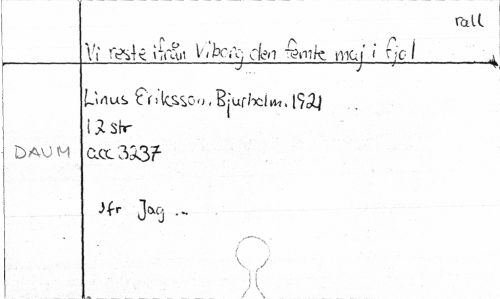 rall
Vi reste ifrån Viborg den femte maj i fjol
Linus Eriksson. Bjurholm. 1921
12 str
DAUM acc 3237
Jfr Jag ...